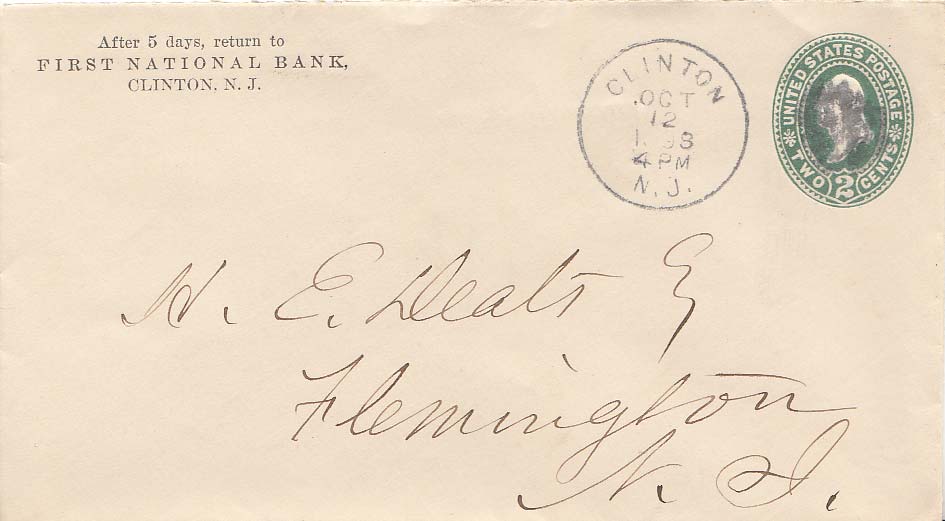 After 5 days, return to
FIRST NATIONAL BANK,
CLINTON, N. J.
CLINTON
OCT
12
4 PM
N. J.
UNITED STATES POSTAGE
TWO 2 CENTS
H. E. Deats
Flemington
N. J.